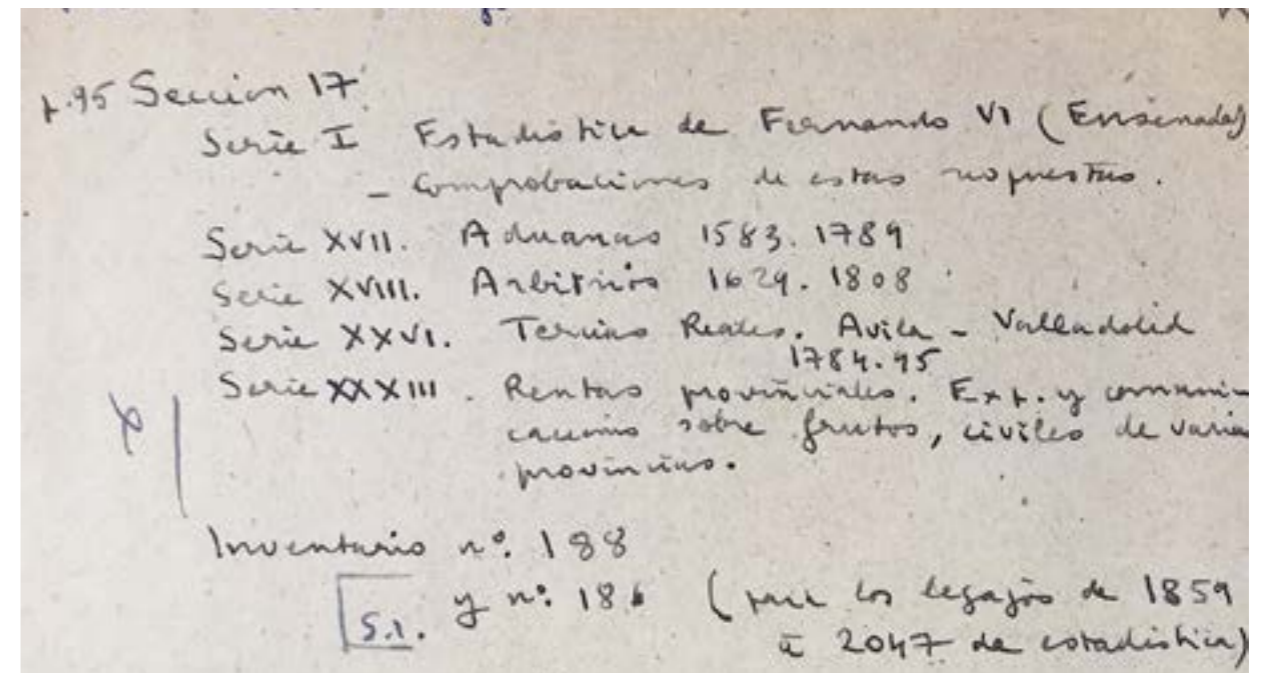 p.95 Seccion 17
Serie I Estadistica de Fernando VI (Ensenada)
- Comprobaciones de estas respuestas.
Serie XVII. Aduanas 1583.1789
Serie XVIII. Arbitrios 1629.1808
Serie XXVI. Tercias Reales. Avila - Valladolid
1784.95
Serie XXXIII. Rentas provinciales. Exp. y comuni-
caciones sobre frutos, civiles de varia
provincias.
Inventario nº. 188
S.1. y nº: 186 (para los legajos de 1859
a 2047 de estadistica)